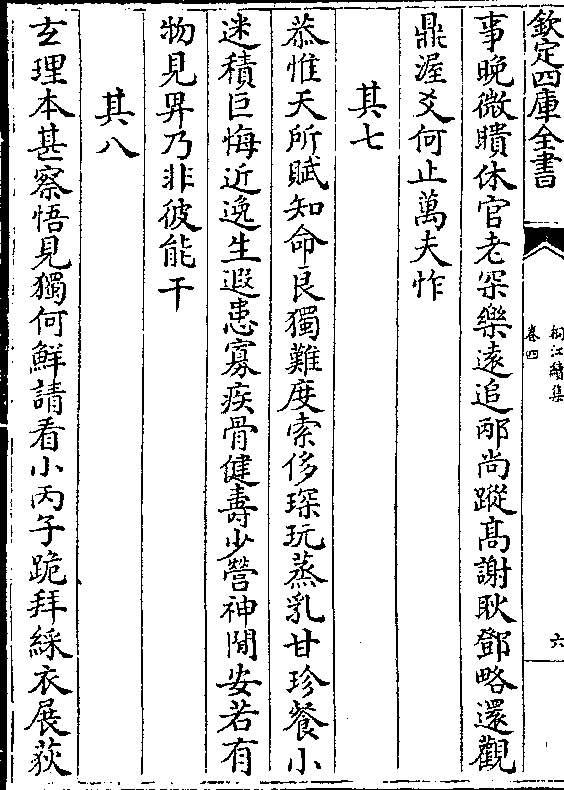 欽定四庫全書
桐江續集
卷四
六
事晚微瞶休官老罙樂遠追邴尚蹤高謝耿鄧略還觀
鼎渥爻何止萬夫怍
其七
恭惟天所賦知命良獨難度索侈琛玩蒸乳甘珍餐小
迷積巨悔近逸生遐患寡疾骨健壽少營神閒安若有
物見畀乃非彼能干
其八
𤣥理本甚察悟見獨何鮮請看小丙子跪拜綵衣展荻